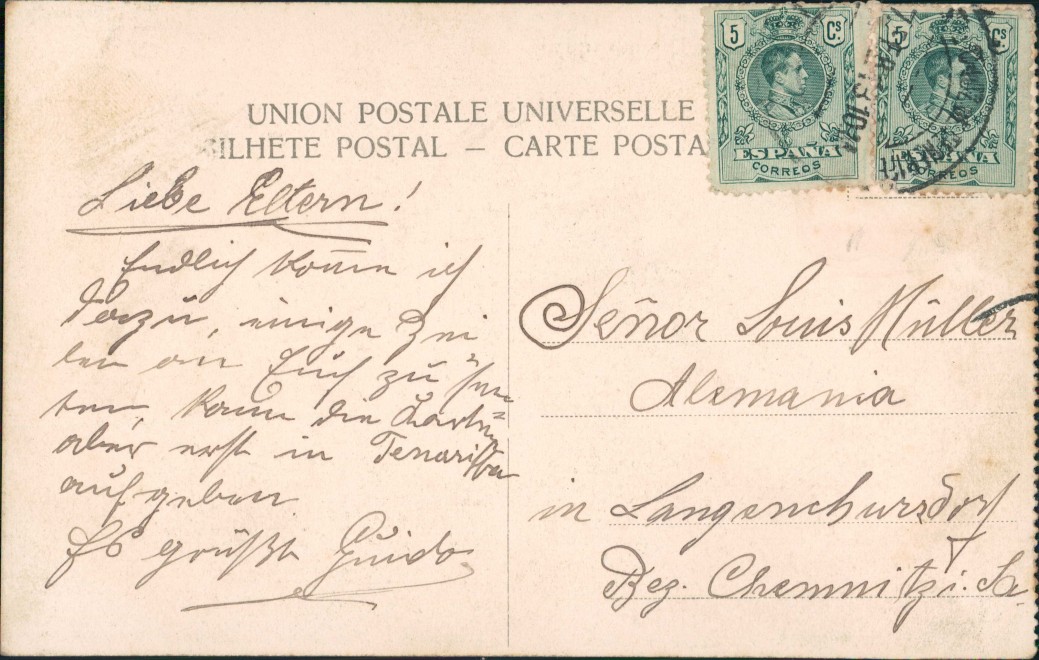 UNION POSTALE UNIVERSELLE
BILHETE POSTAL – CARTE POSTA
5 Cs
ESPAÑA
CORREOS
5 Cs
ESPAÑA
CORREOS
Liebe Eltern!
Endlich komme ich
dazu, einige Zei
len an Euch zu
kann die Karte
aber erst in Teneriffa
aufgeben
Es grüßt Guido
Señor Louis Müller
Alemania
in Langenchursdorf
Bez. Chemnitz i. Sa